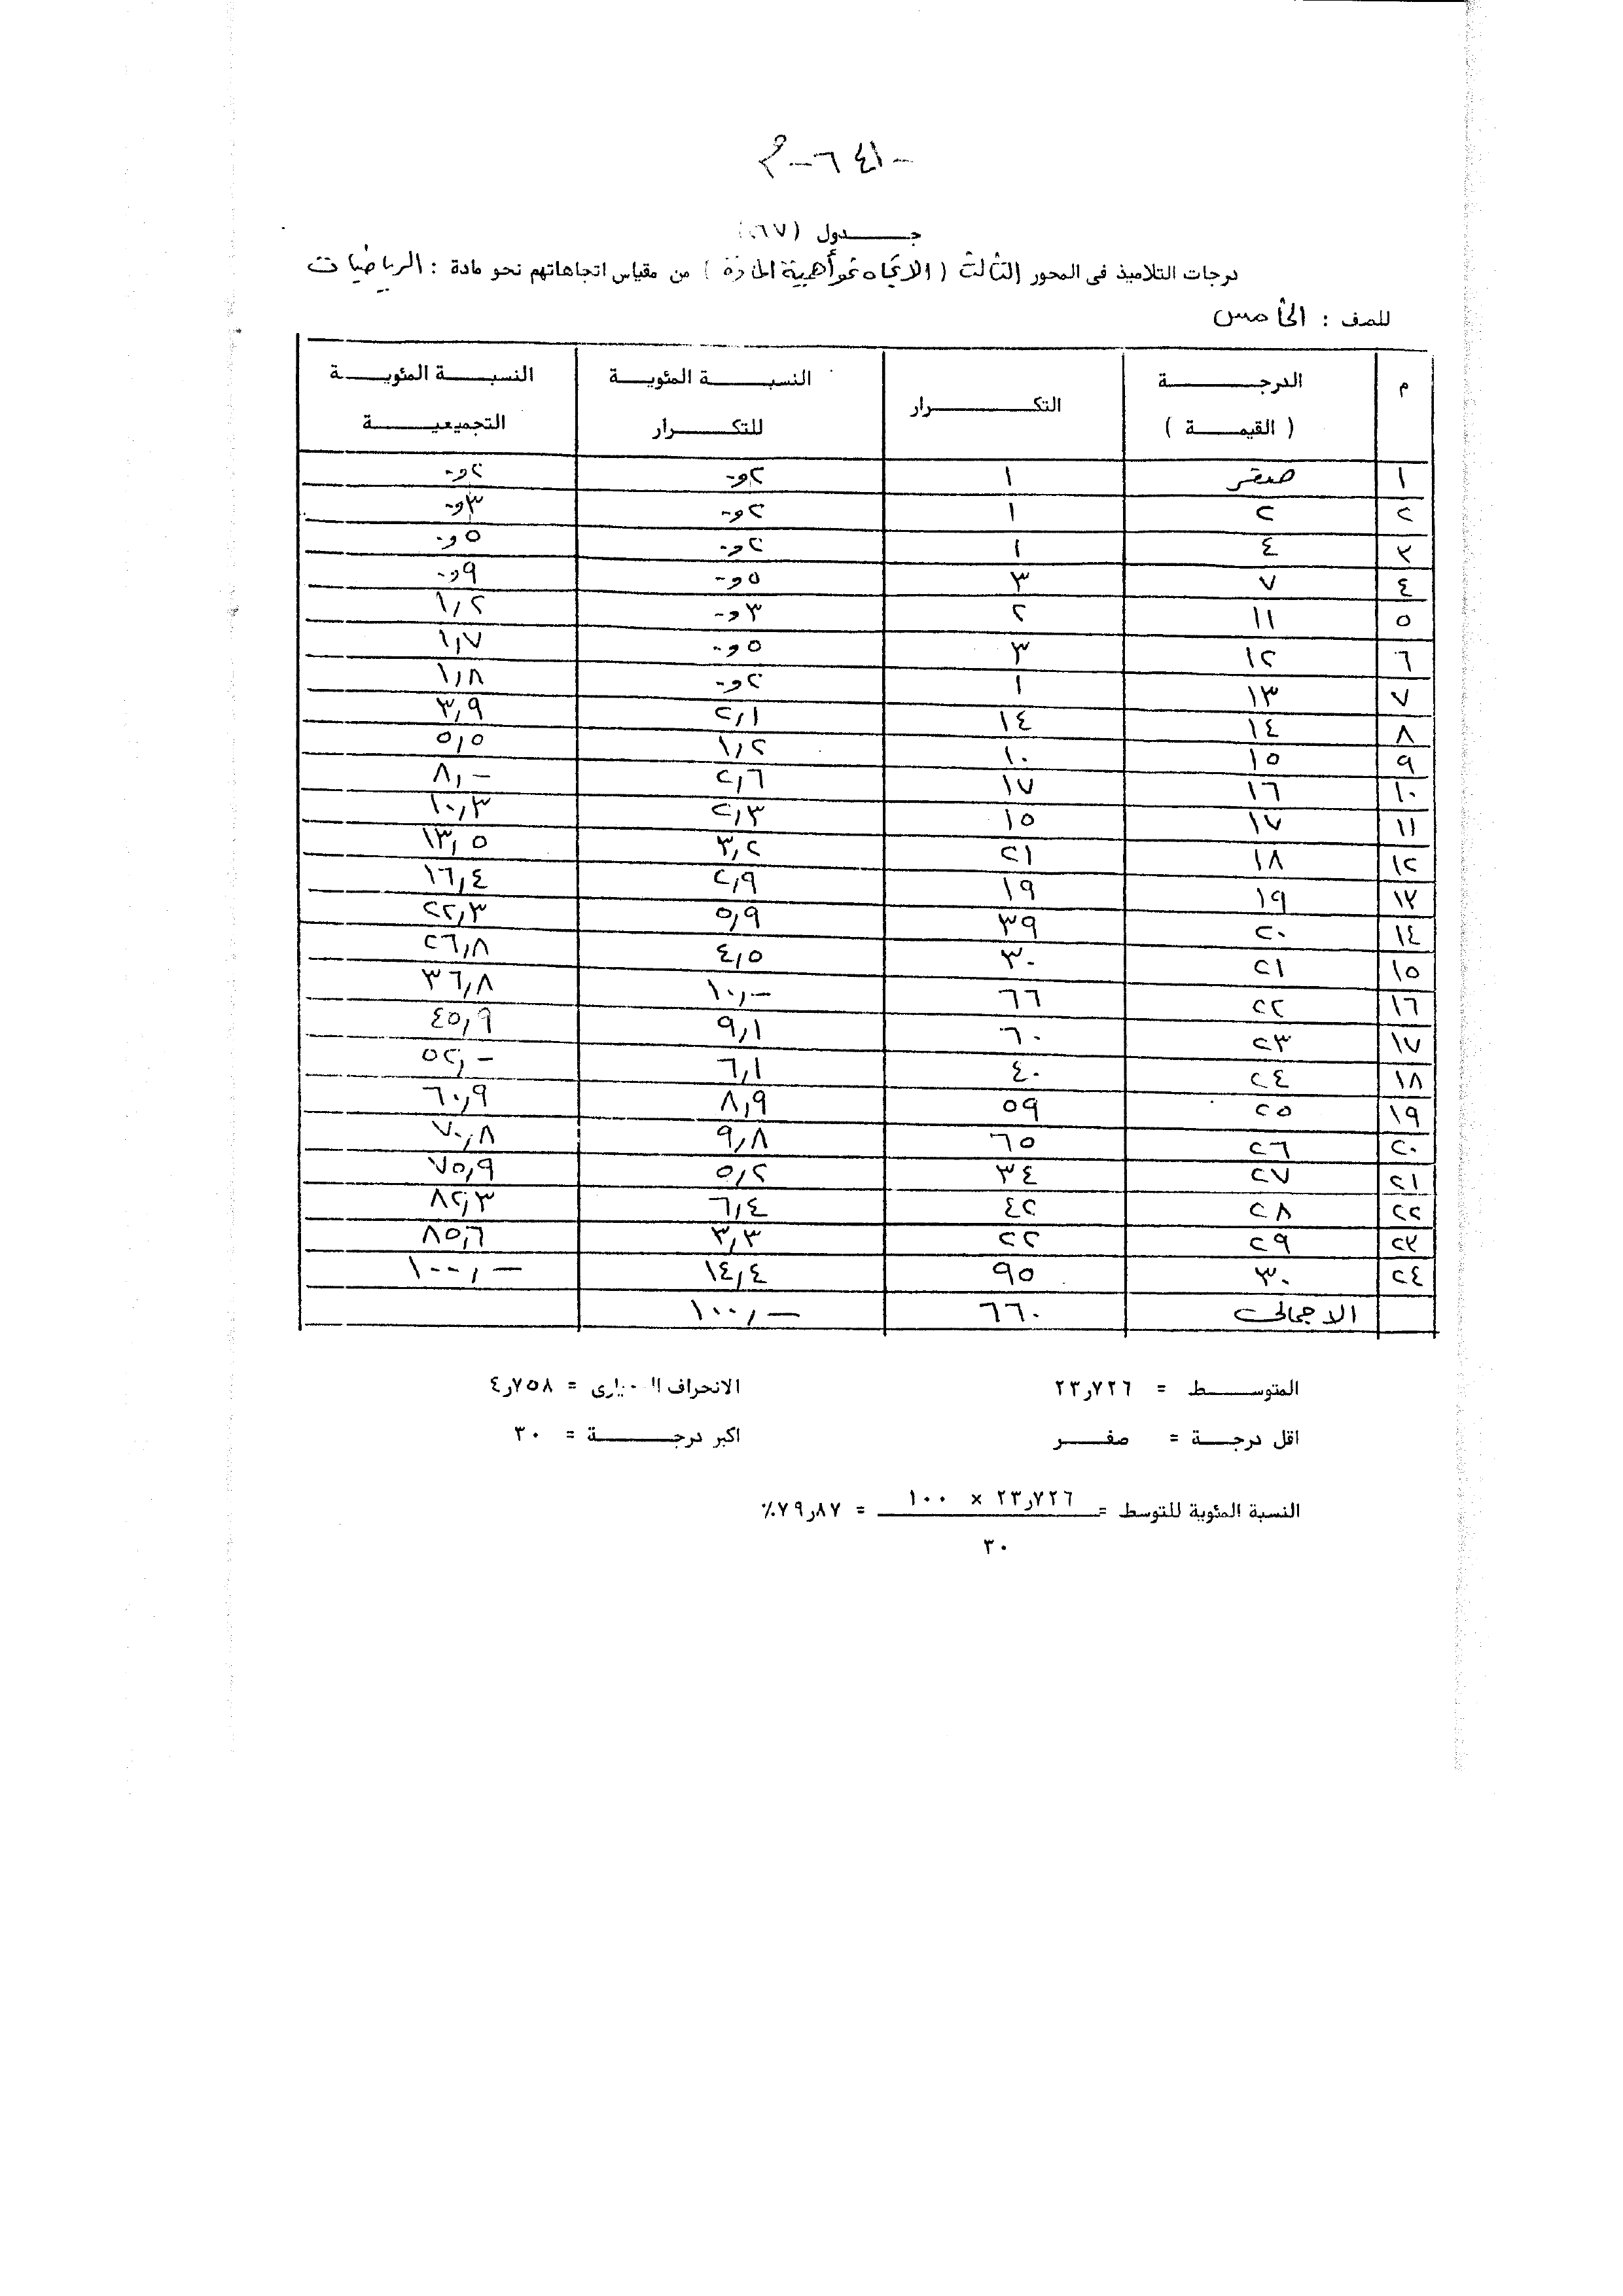 - ٦٤١ -
جـــدول (٦٧)
درجات التلاميذ فى المحور الثالث ( الاتجاه نحو أهمية المادة ) من مقياس اتجاهاتهم نحو مادة : الرياضيات
للصف : الخامس
م الدرجــــة ( القيمــــة ) التكــــرار النسبــــة المئويــــة للتكــــرار النسبــــة المئويــــة التجميعيــــة
١ صفر ١ ٢و- ٢و-
٢ ٢ ١ ٢و- ٣و-
٣ ٤ ١ ٢و- ٥و-
٤ ٧ ٣ ٥و- ٩و-
٥ ١١ ٢ ٣و- ١,٢
٦ ١٢ ٣ ٥و- ١,٧
٧ ١٣ ١ ٢و- ١,٨
٨ ١٤ ١٤ ٢,١ ٣,٩
٩ ١٥ ١٠ ١,٢ ٥,٥
١٠ ١٦ ١٧ ٢,٦ ٨,-
١١ ١٧ ١٥ ٢,٣ ١٠,٣
١٢ ١٨ ٢١ ٣,٢ ١٣,٥
١٣ ١٩ ١٩ ٢,٩ ١٦,٤
١٤ ٢٠ ٣٩ ٥,٩ ٢٢,٣
١٥ ٢١ ٣٠ ٤,٥ ٢٦,٨
١٦ ٢٢ ٦٦ ١٠,- ٣٦,٨
١٧ ٢٣ ٦٠ ٩,١ ٤٥,٩
١٨ ٢٤ ٤٠ ٦,١ ٥٢,-
١٩ ٢٥ ٥٩ ٨,٩ ٦٠,٩
٢٠ ٢٦ ٦٥ ٩,٨ ٧٠,٨
٢١ ٢٧ ٣٤ ٥,٢ ٧٥,٩
٢٢ ٢٨ ٤٢ ٦,٤ ٨٢,٣
٢٣ ٢٩ ٢٢ ٣,٣ ٨٥,٦
٢٤ ٣٠ ٩٥ ١٤,٤ ١٠٠,-
الاجمالى ٦٦٠ ١٠٠,-
المتوســـط = ٢٣٫٧٢٦ الانحراف = ٤٫٧٥٨
اقل درجـــة = صفـــر اكبر درجـــــة = ٣٠
النسبة المئوية للتوسط = ٢٣٫٧٢٦ × ١٠٠ = ٧٩٫٨٧٪
٣٠